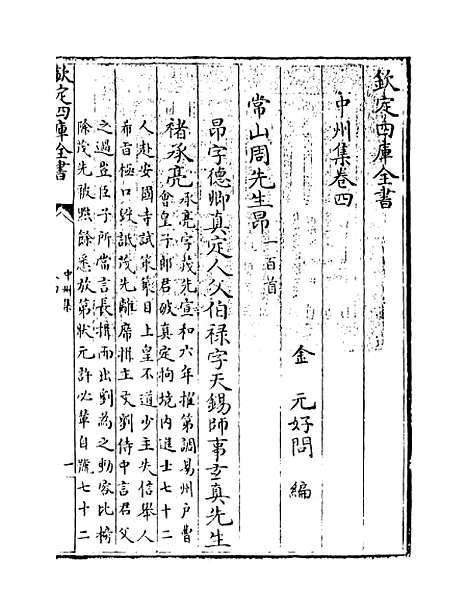 欽定四庫全書
中州集卷四
金 元好問 編
常山周先生昂 一百首
昂字德卿真定人父伯禄字天錫師事玄真先生
褚承亮 承亮字茂先宣和六年擢第調易州户曹
會皇子郎君破真定拘境内進士七十二
人赴安國寺試策策目上皇不道少主失信舉人
希旨極口毀詆茂先離席揖主文劉侍中言君父
之過豈臣子所當言長揖而出劉為之動容比榜
除茂先被黙餘悉放第狀元許必輩自號七十二
欽定四庫全書
中州集
一